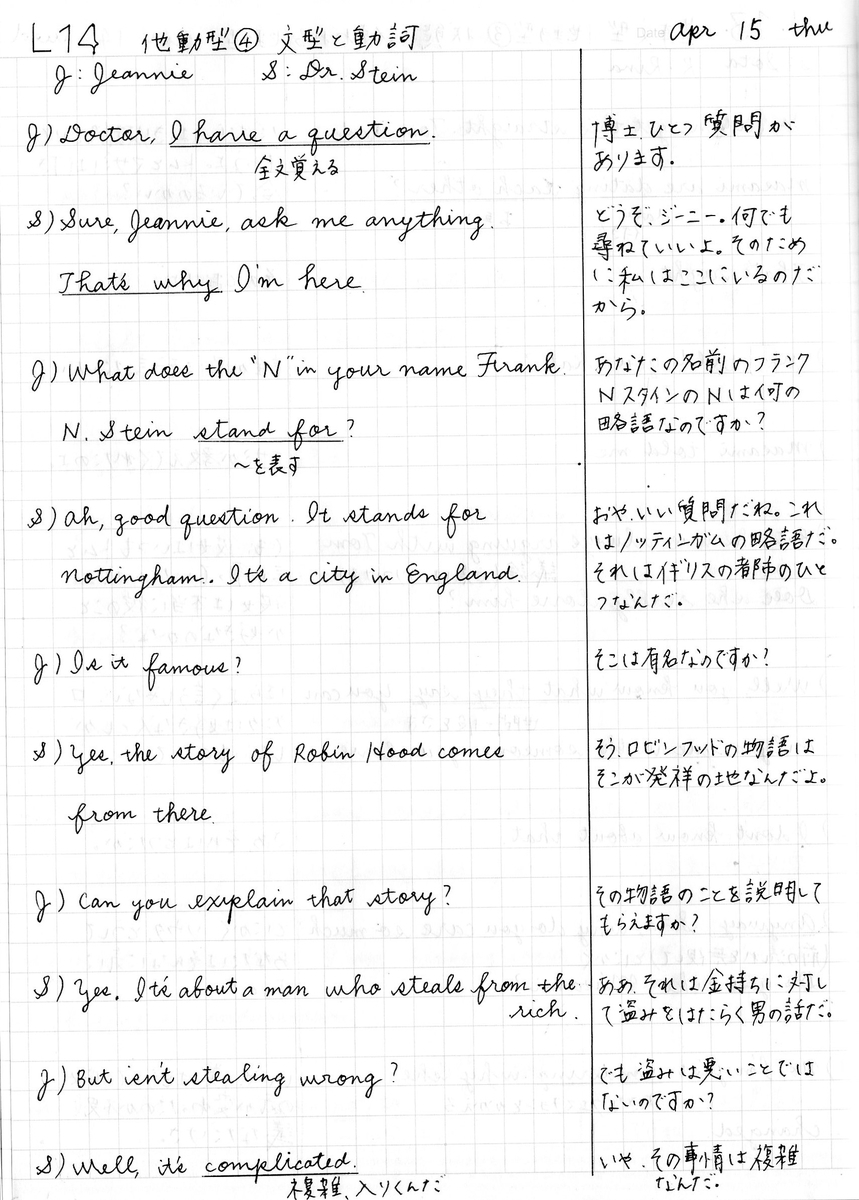 L14 他動型④ 文型と動詞 Apr 15 thu
J: Jeannie S: Dr. Stein
J) Doctor, I have a question.
全文覚える
博士、ひとつ質問が
あります。
S) Sure, Jeannie, ask me anything.
That's why I'm here.
どうぞ、ジーニー。何でも
尋ねていいよ。そのため
に私はここにいるのだ
から。
J) What does the "N" in your name Frank
N. Stein stand for?
〜を表す
あなたの名前のフランク
NスタインのNは何の
略語なのですか?
S) Ah, good question. It stands for
Nottingham. It's a city in England.
おや、いい質問だね。これ
はノッティンガムの略語だ。
それはイギリスの都市のひと
つなんだ。
J) Is it famous?
そこは有名なのですか?
S) Yes, the story of Robin Hood comes
from there.
そう、ロビンフッドの物語は
そこが発祥の地なんだよ。
J) Can you explain that story?
その物語のことを説明して
もらえますか?
S) Yes. It's about a man who steals from the
rich.
ああ、それは金持ちに対し
て盗みをはたらく男の話だ。
J) But isn't stealing wrong?
でも盗みは悪いことでは
ないのですか?
S) Well, it's complicated.
複雑、入りくんだ
いや、その事情は複雑
なんだ。